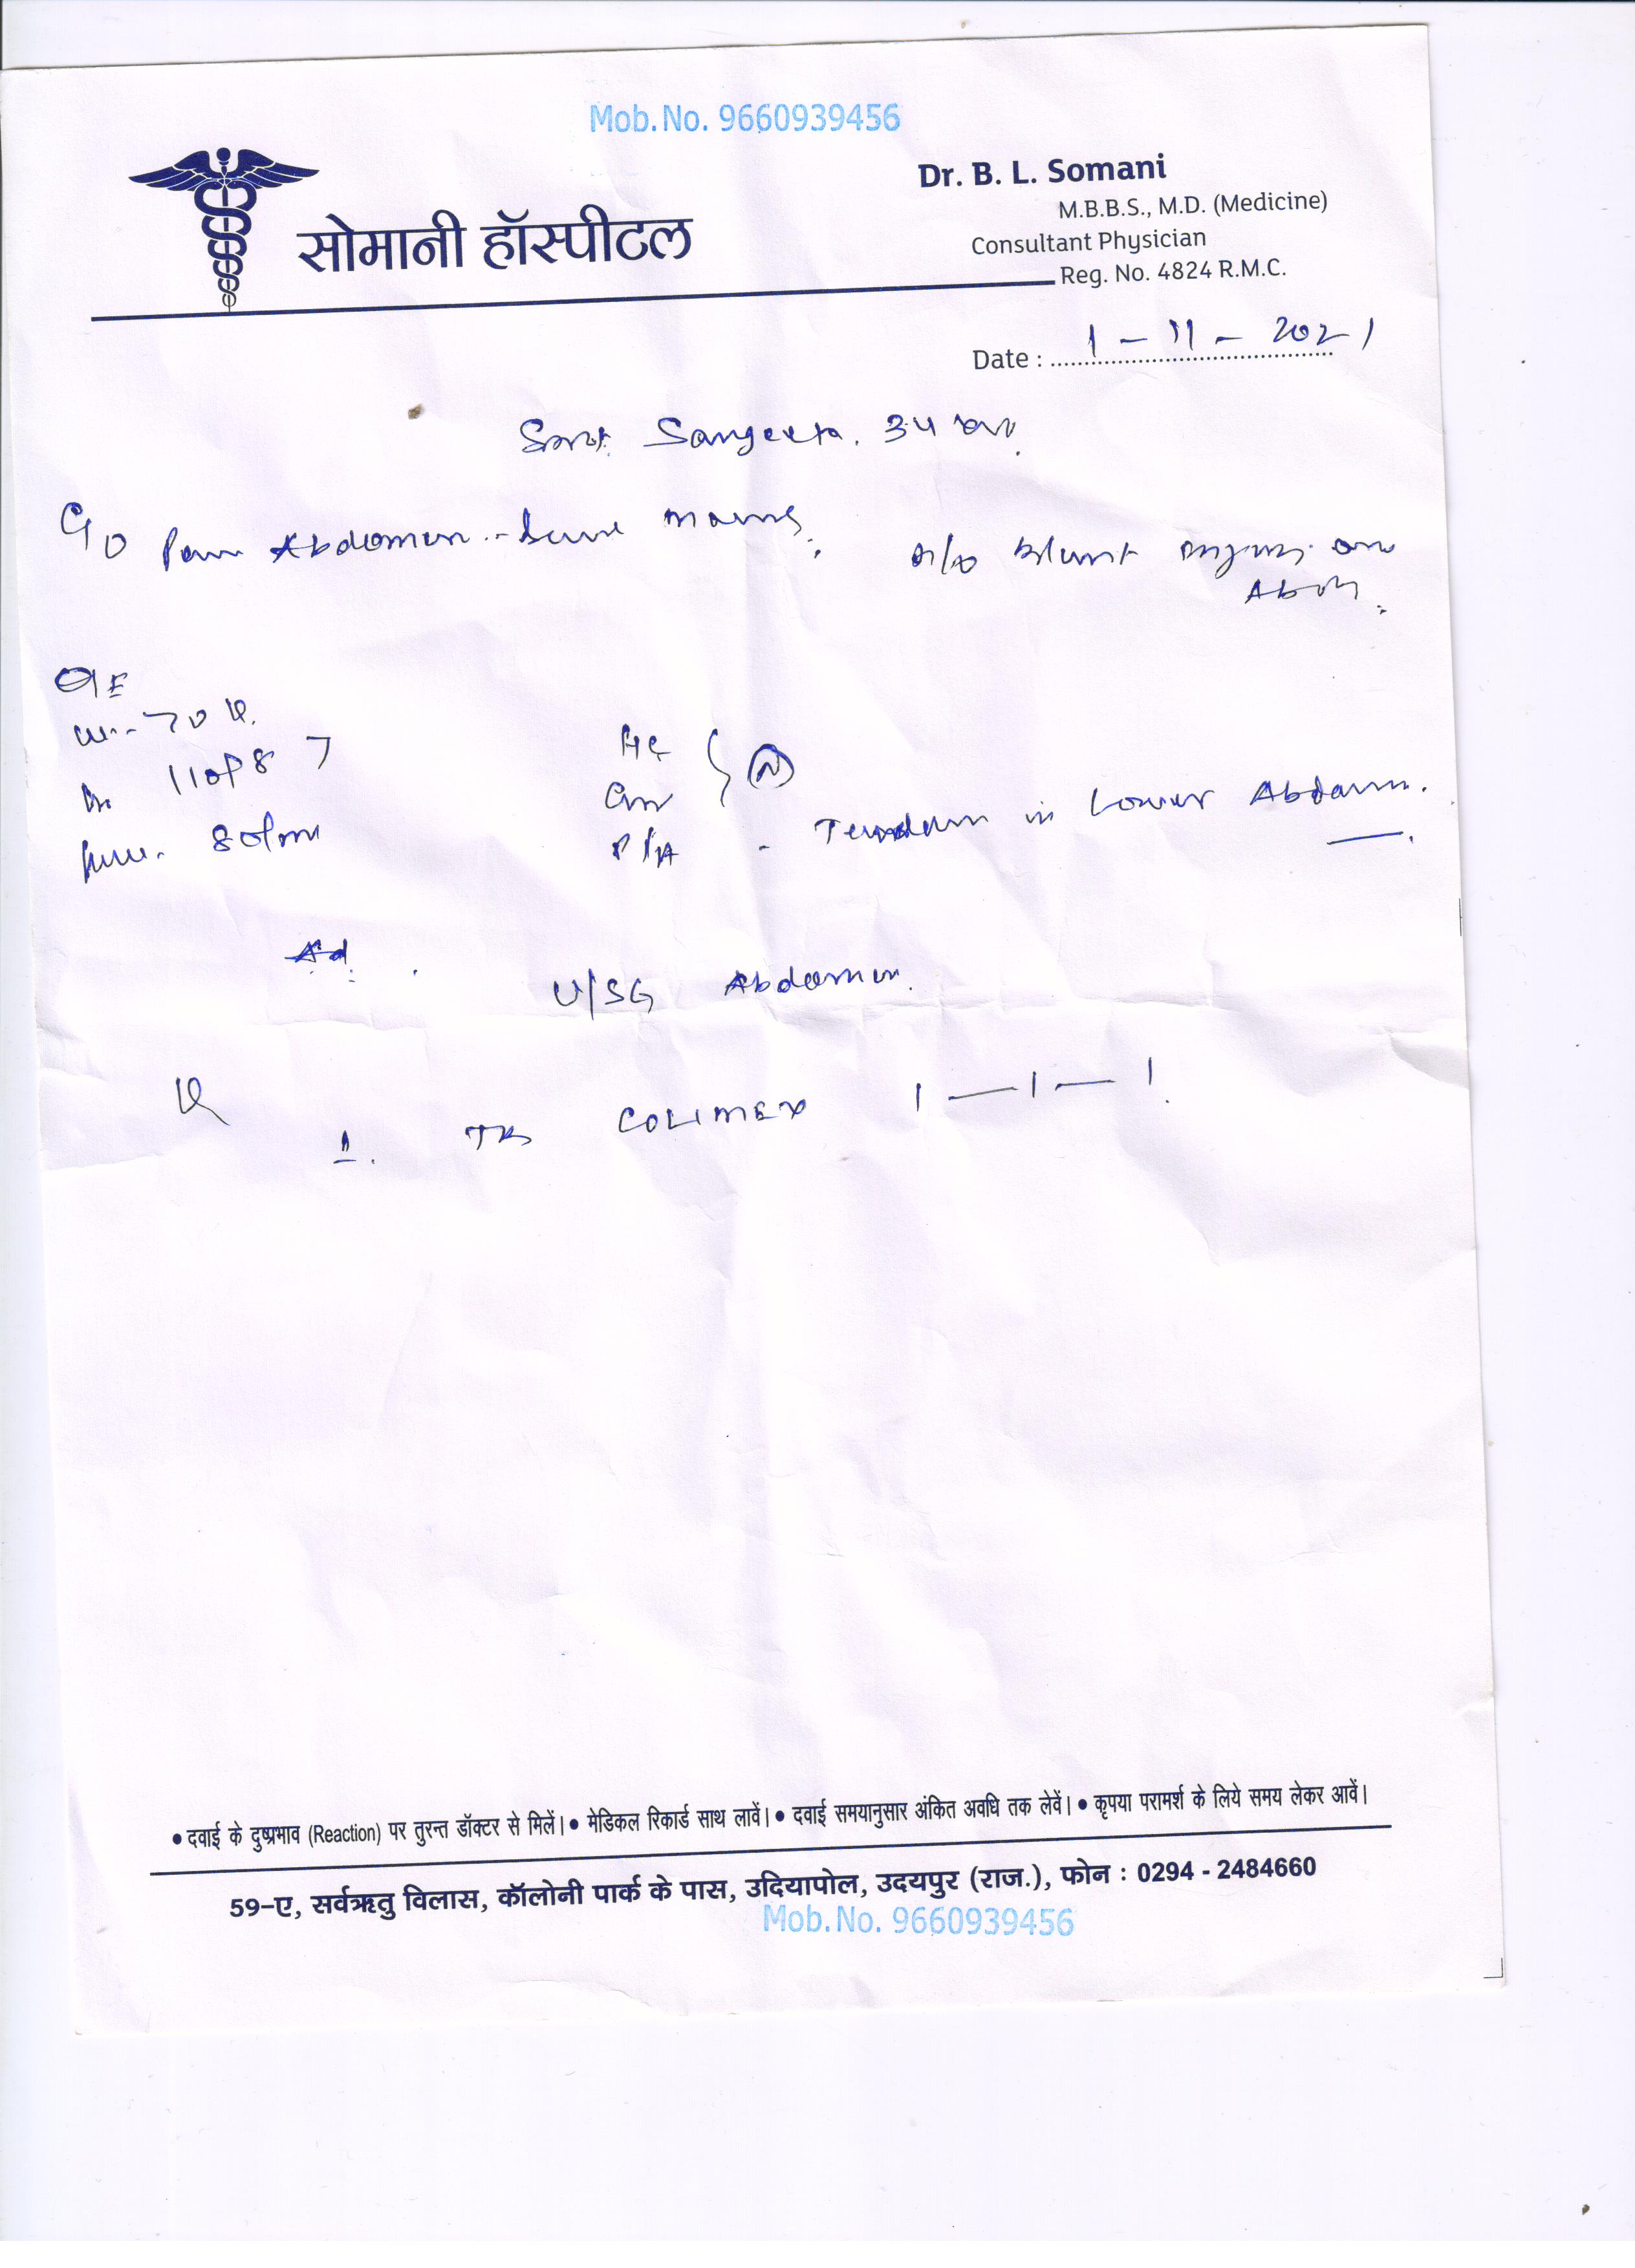 Mob.No. 9660939456
सोमानी हॉस्पीटल
Dr. B. L. Somani
M.B.B.S., M.D. (Medicine)
Consultant Physician
Reg. No. 4824 R.M.C.
Date : 1 - 11 - 2021
Smt. Sangeeta.
C/o Pain Abdomen - Since
H/o Blunt injury on
Abd.
O/E
wt. - 70 k.
110/8
80/m
P/A - Tenderness in Lower Abdomen.
Ad.
U/SG Abdomen.
R
1. Tab COLIMEX 1 — 1 — 1
• दवाई के दुष्प्रभाव (Reaction) पर तुरन्त डॉक्टर से मिलें। • मेडिकल रिकार्ड साथ लावें। • दवाई समयानुसार अंकित अवधि तक लेवें। • कृपया परामर्श के लिये समय लेकर आवें।
59-ए, सर्वऋतु विलास, कॉलोनी पार्क के पास, उदियापोल, उदयपुर (राज.), फोन : 0294 - 2484660
Mob.No. 9660939456